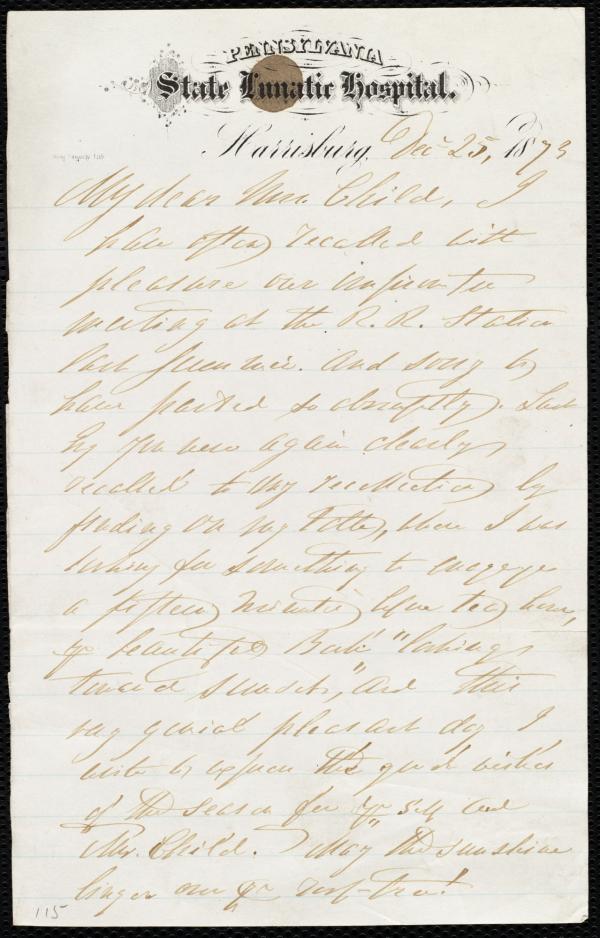 PENNSYLVANIA
State Lunatic Hospital.
Harrisburg, Dec 25, 1873
My dear Mrs. Child, I
have often recalled with
pleasure our
meeting at the R. R. Station
last Summer. And sorry to
have parted so abruptly. Last
Eg you were again clearly
recalled to my recollection by
finding on my table, when I was
looking for something to engage
a fifteen minutes before tea hour,
yr beautiful Book "looking
toward sunset", and this
very genial pleasant day I
write to express the good wishes
of the season for yr self and
Mr. Child. May the sunshine
linger over yr roof-tree!
115